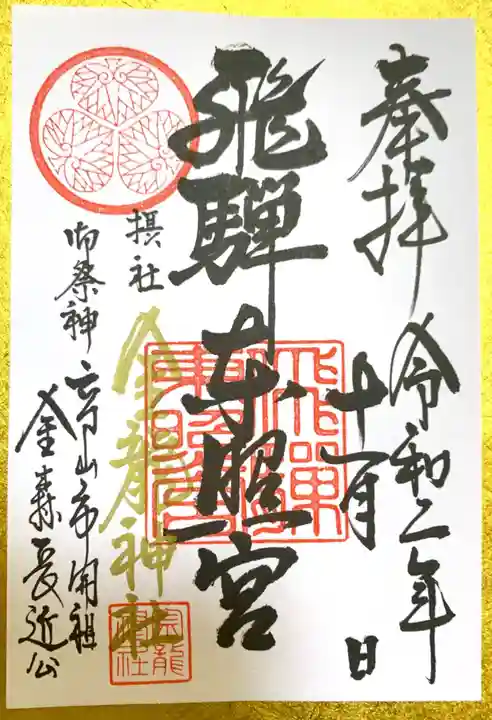 奉拝
令和二年
十一月 日
飛騨東照宮
摂社
金龍神社
御祭神
高山市開祖
金森長近公
飛騨東照宮
金龍神社